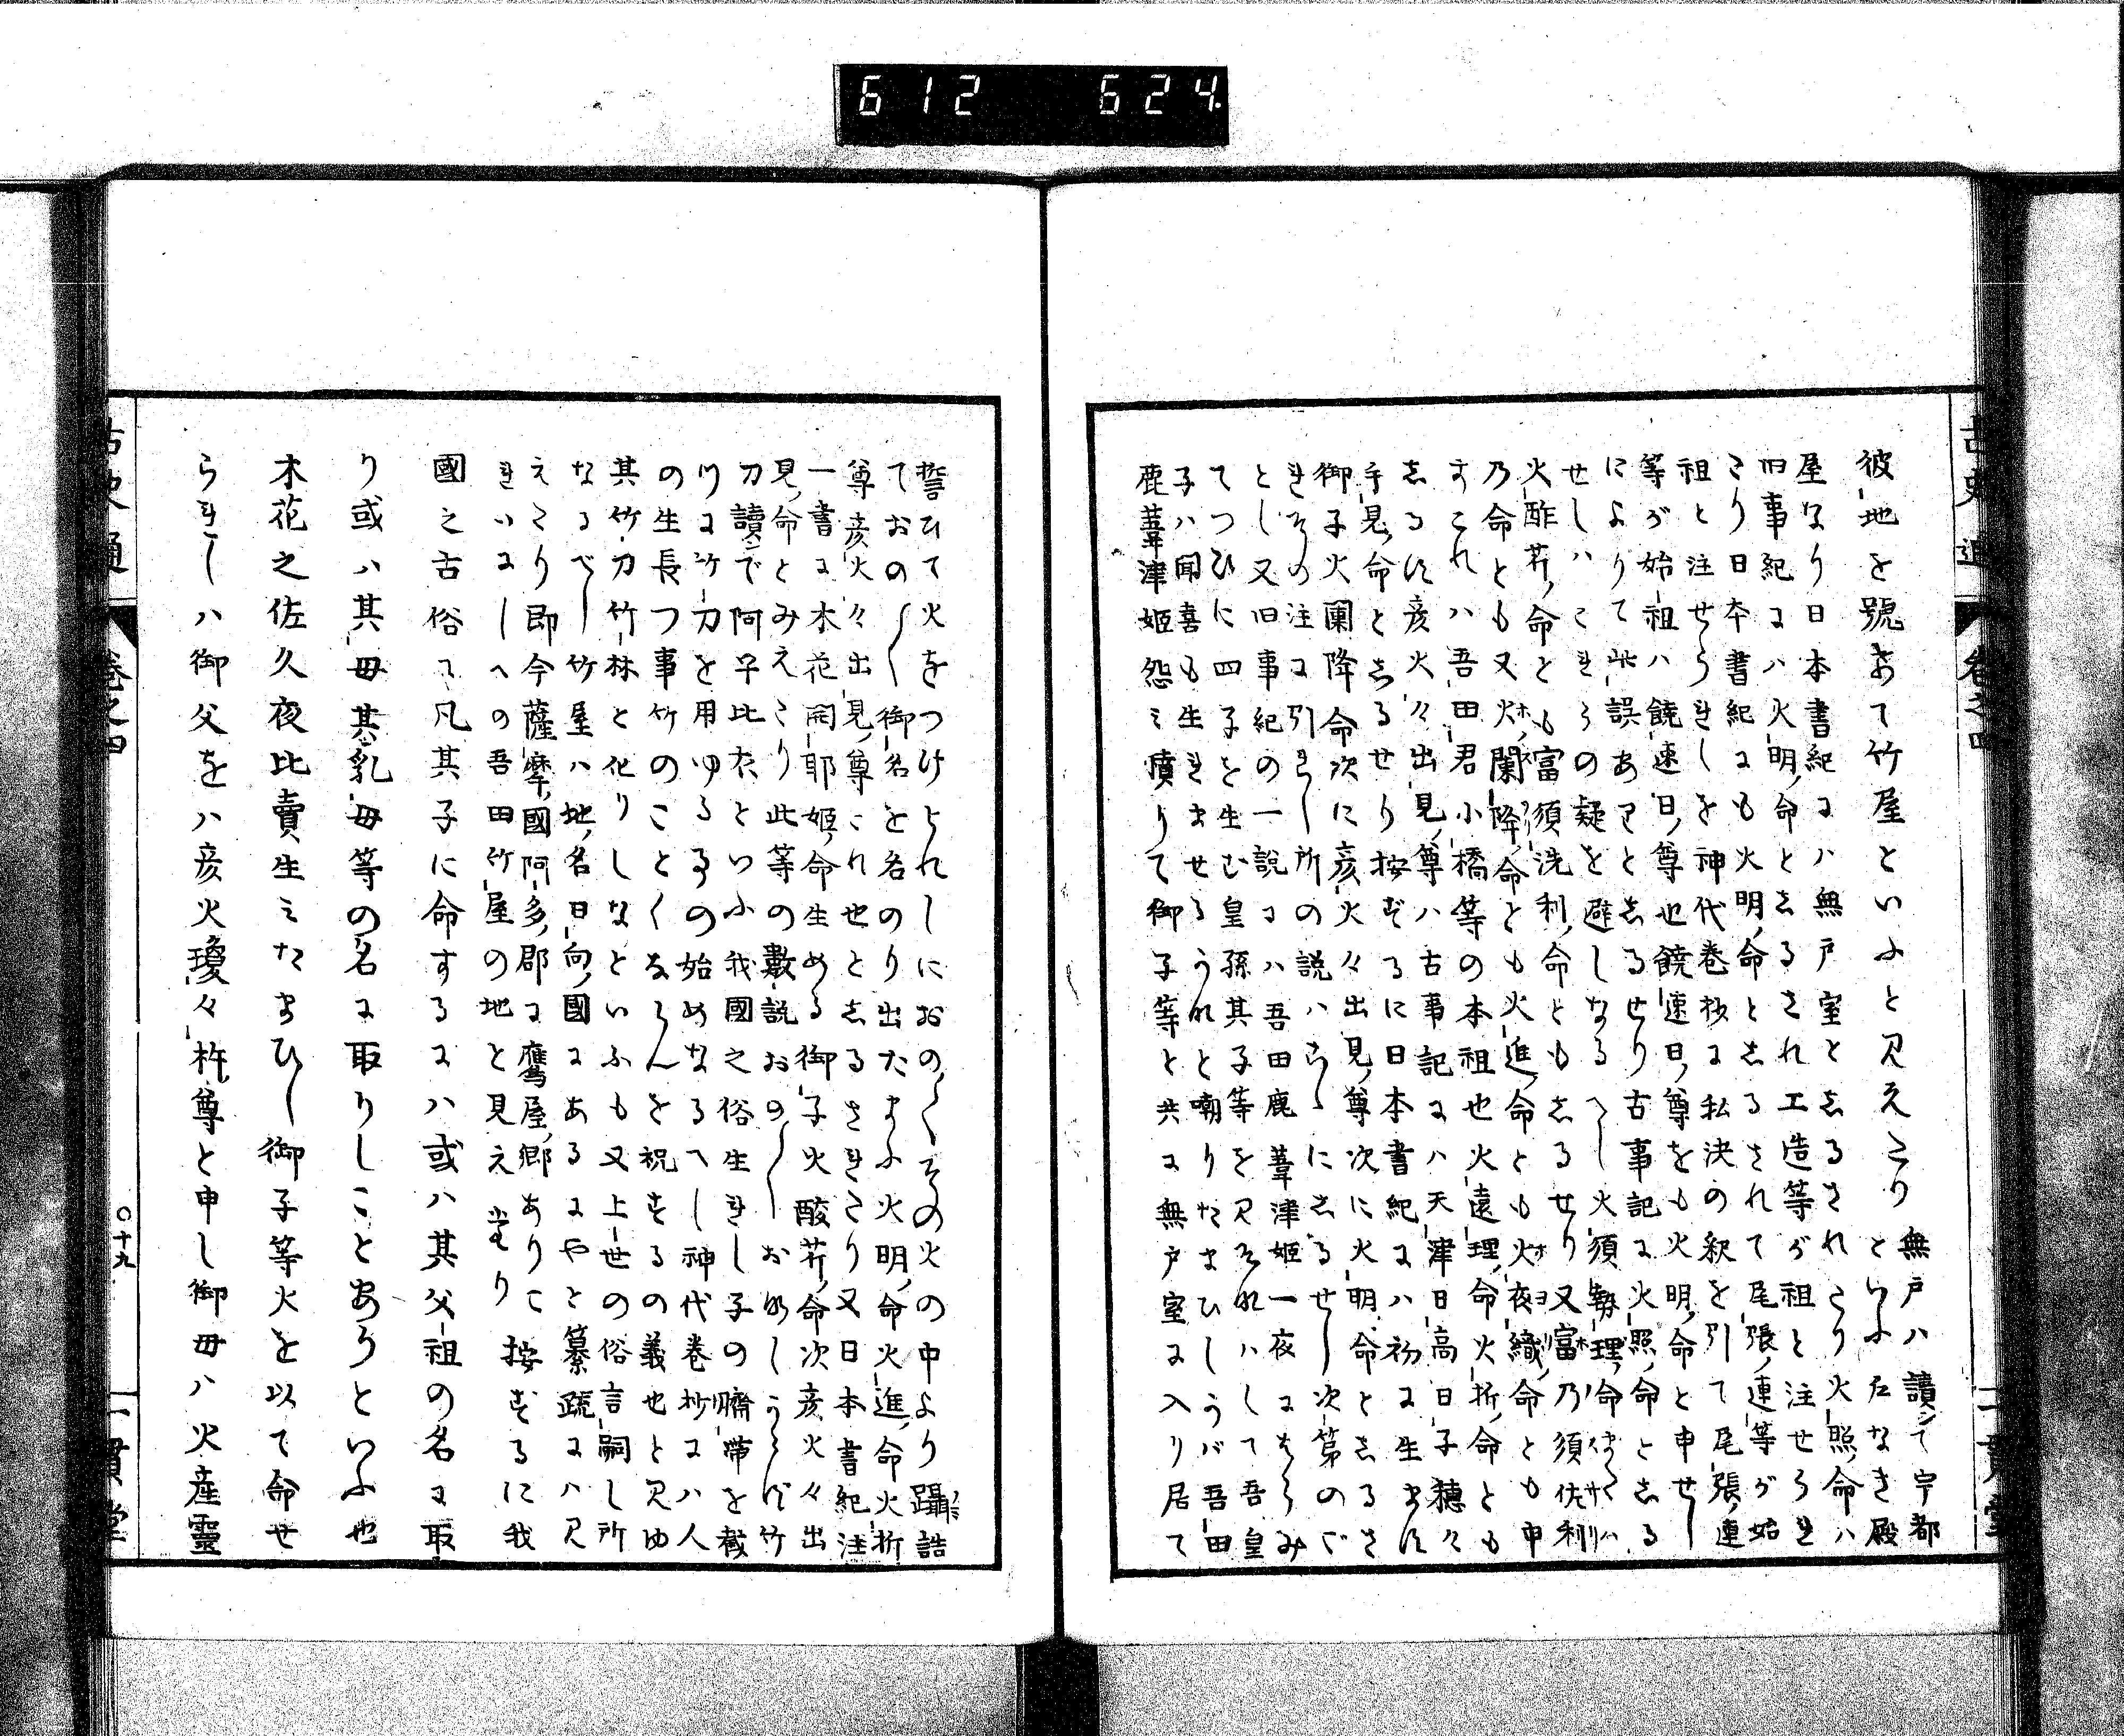 612 624
古史通 巻之四 一貫堂
彼地を號あて竹屋といふと見えたり 無戸ハ讀て宇都
といふ戸なき殿
屋なり日本書紀にハ無戸室としるされたり火照命ハ
旧事紀にハ火明命としるされ工造等が祖と注せられ
たり日本書紀にも火明命としるされて尾張連等が始
祖と注せられしを神代巻抄に私決の釈を引て尾張連
等が始祖ハ饒速日尊也饒速日尊をも火明命と申せし
によりて此誤ありとしるせり古事記に火照命としる
せしハこれらの疑を避しなるへし火須勢理命
火酢芹命とも富須洗利命ともしるせり又富乃須佐利
乃命とも又火闌降命とも火進命とも火夜織命とも申
すこれハ吾田君小橋等の本祖也火遠理命火折命とも
しるす彦火々出見尊ハ古事記にハ天津日高日子穂々
手見命としるせり按ずるに日本書紀にハ初に生ます
御子火闌降命次に彦火々出見尊次に火明命としるさ
れその注に引れし所の説ハこゝにしるせし次第のご
とし又旧事紀の一説にハ吾田鹿葦津姫一夜にはらみ
てつひに四子を生む皇孫其子等を見それハして吾皇
子ハ聞喜も生れませるうれと嘲りたまひしうバ吾田
鹿葦津姫怨ミ憤りて御子等と共に無戸室に入り居て
誓ひて火をつけとれしにおの〱その火の中より躡誥
ておの〱御名を名のり出たまふ火明命火進命火折
尊彦火々出見尊これ也としるされたり又日本書紀注
一書に木花開耶姫命生める御子火酸芹命次彦火々出
見命とみえたり此等の數説おの〱おなしうらず竹
刀讀で阿乎比衣といふ我國之俗生れし子の臍帯を截
りに竹刀を用ゆるその始めなるへし神代巻抄にハ人
の生長つ事竹のことくならんを祝するの義也と見ゆ
其竹刀竹林と化りしなといふも又上世の俗言嗣し所
なるべし竹屋ハ地名日向國にあるにやと纂疏にハ見
えたり即今薩摩國阿多郡に鷹屋郷ありこ
れいにしへの吾田竹屋の地と見えたり 按ずるに我
國之古俗て凡其子に命するにハ或ハ其父祖の名に取
り或ハ其母其乳母等の名に取りしことありといふ也
木花之佐久夜比賣生ミたまひし御子等火を以て命せ
られしハ御父をハ彦火瓊々杵尊と申し御母ハ火産靈
古史通 巻之四 〇十九 一貫堂